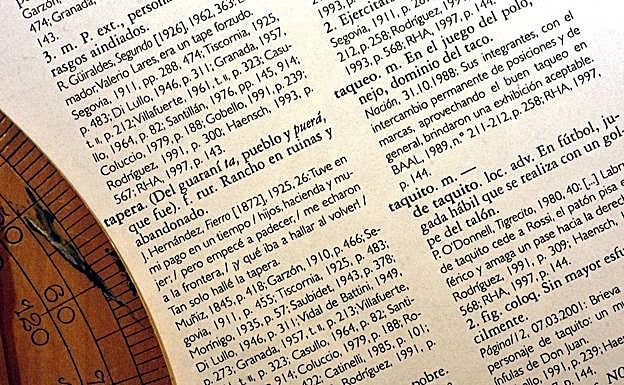 Garzón,
474; Granada,
143.
3. m. P. ext., persona
rasgos aindiados.
R. Güiraldes, Segundo [1926], 1962, 363: E
mador, Valerio Lares, era un tape forzudo.
Segovia, 1911, pp. 288, 474; Tiscornia, 1925,
p. 483; Di Lullo, 1946, p. 311; Granada, 1957,
t. II, p. 212; Villafuerte, 1961, t. II, p. 323; Casu-
llo, 1964, p. 82; Santillán, 1976, pp. 145, 914;
Coluccio, 1979, p. 188; Gobello, 1991, p. 239;
Rodríguez, 1991, p. 300; Haensch, 1993, p.
567; RHA, 1997, p. 143.
tapera. (Del guaraní ta, pueblo y puerá,
que fue). f. rur. Rancho en ruinas y
abandonado.
J. Hernández, Fierro [1872], 1925, 26: Tuve en
mi pago en un tiempo / hijos, hacienda y mu-
jer; / pero empecé a padecer, / me echaron
a la frontera, / ¡y qué iba a hallar al volver! /
Tan solo hallé la tapera.
Muñiz, 1845, p. 418; Garzón, 1910, p. 466; Se-
govia, 1911, p. 455; Tiscornia, 1925, p. 483;
Morínigo, 1935, p. 57; Saubidet, 1943, p. 378;
Di Lullo, 1946, p. 311; Vidal de Battini, 1949,
p. 273; Granada, 1957, t. II, p. 213; Villafuerte,
t. II, p. 323; Casullo, 1964, p. 82; Santi-
Coluccio, 1979, p. 188; Ro-
p. 422; Catinelli, 1985, p. 101;
Rodríguez, 1991, p.
2. Ejercitar
Segovia, 1911, p. 
212, p. 258; Rodríguez, 199
1993, p. 568; RHA, 1997, p. 143.
taqueo. m. En el juego del polo,
nejo, dominio del taco.
Nación, 31.10.1988: Sus integrantes, con el
intercambio permanente de posiciones y de
marcas, aprovechando el buen taqueo en
general, brindaron una exhibición aceptable.
BAAL, 1989, n.º 211-212, p. 258; RHA, 1997,
p. 144.
taquito. m. —
de taquito. loc. adv. En fútbol, ju-
gada hábil que se realiza con un gol-
pe del talón.
P. O'Donnell, Tigrecito, 1980, 40: [...] Labr
de taquito cede a Rossi, el patón pisa e
férico y amaga un pase hacia la derech
Rodríguez, 1991, p. 309; Haensch,
568; RHA, 1997, p. 144.
2. fig. coloq. Sin mayor esfu
cilmente.
Página/12, 07.03.2001: Brieva
personaje de taquito: un m
ínfulas de Don Juan.
1991, p. 239; Haensch
144.
60